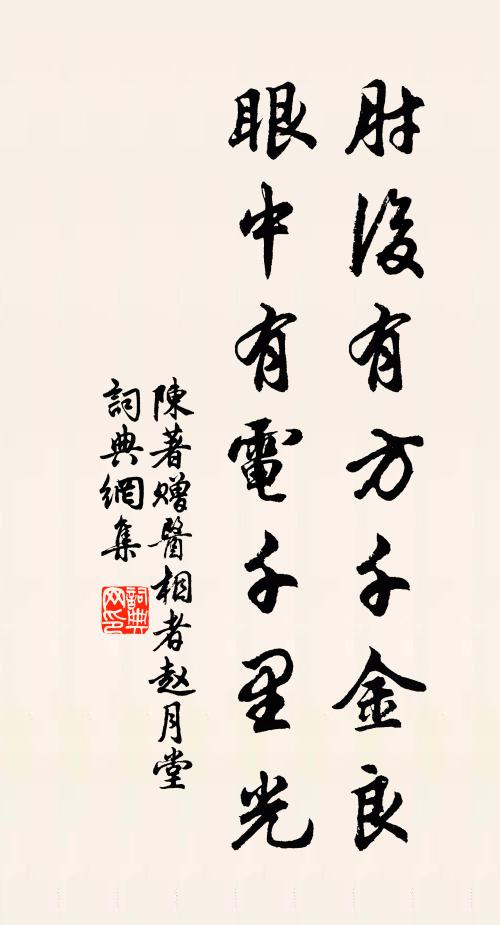 肘後有方千金良
眼中有電千里光
陳著贈醫相者赵月堂
詞典網集
詞典网印